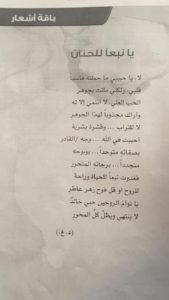 باقة أشعار
يا نبعا للحنان
لا، يا حبيبي ما حملته قاسيا
قلبي، ولكني ملئت بجوهر
الحب العلي، لا أنتمي إلا له
وأراك مجذوباً لهذا الجوهر
لا لقتراب ... وقشرة بشرية
أحببت في الله ... وجه /القادر
بصفاته متوحداً ... بوجوبه
متجدداً ... برجائه المتحرر
فغدوت نبعاً للحياة وراحة
للروح او قل فوح زهر عاطر
يا توأم الروحين حبي خالدٌ
لا ينتهي ويظل كل المحور
(د.ع.)